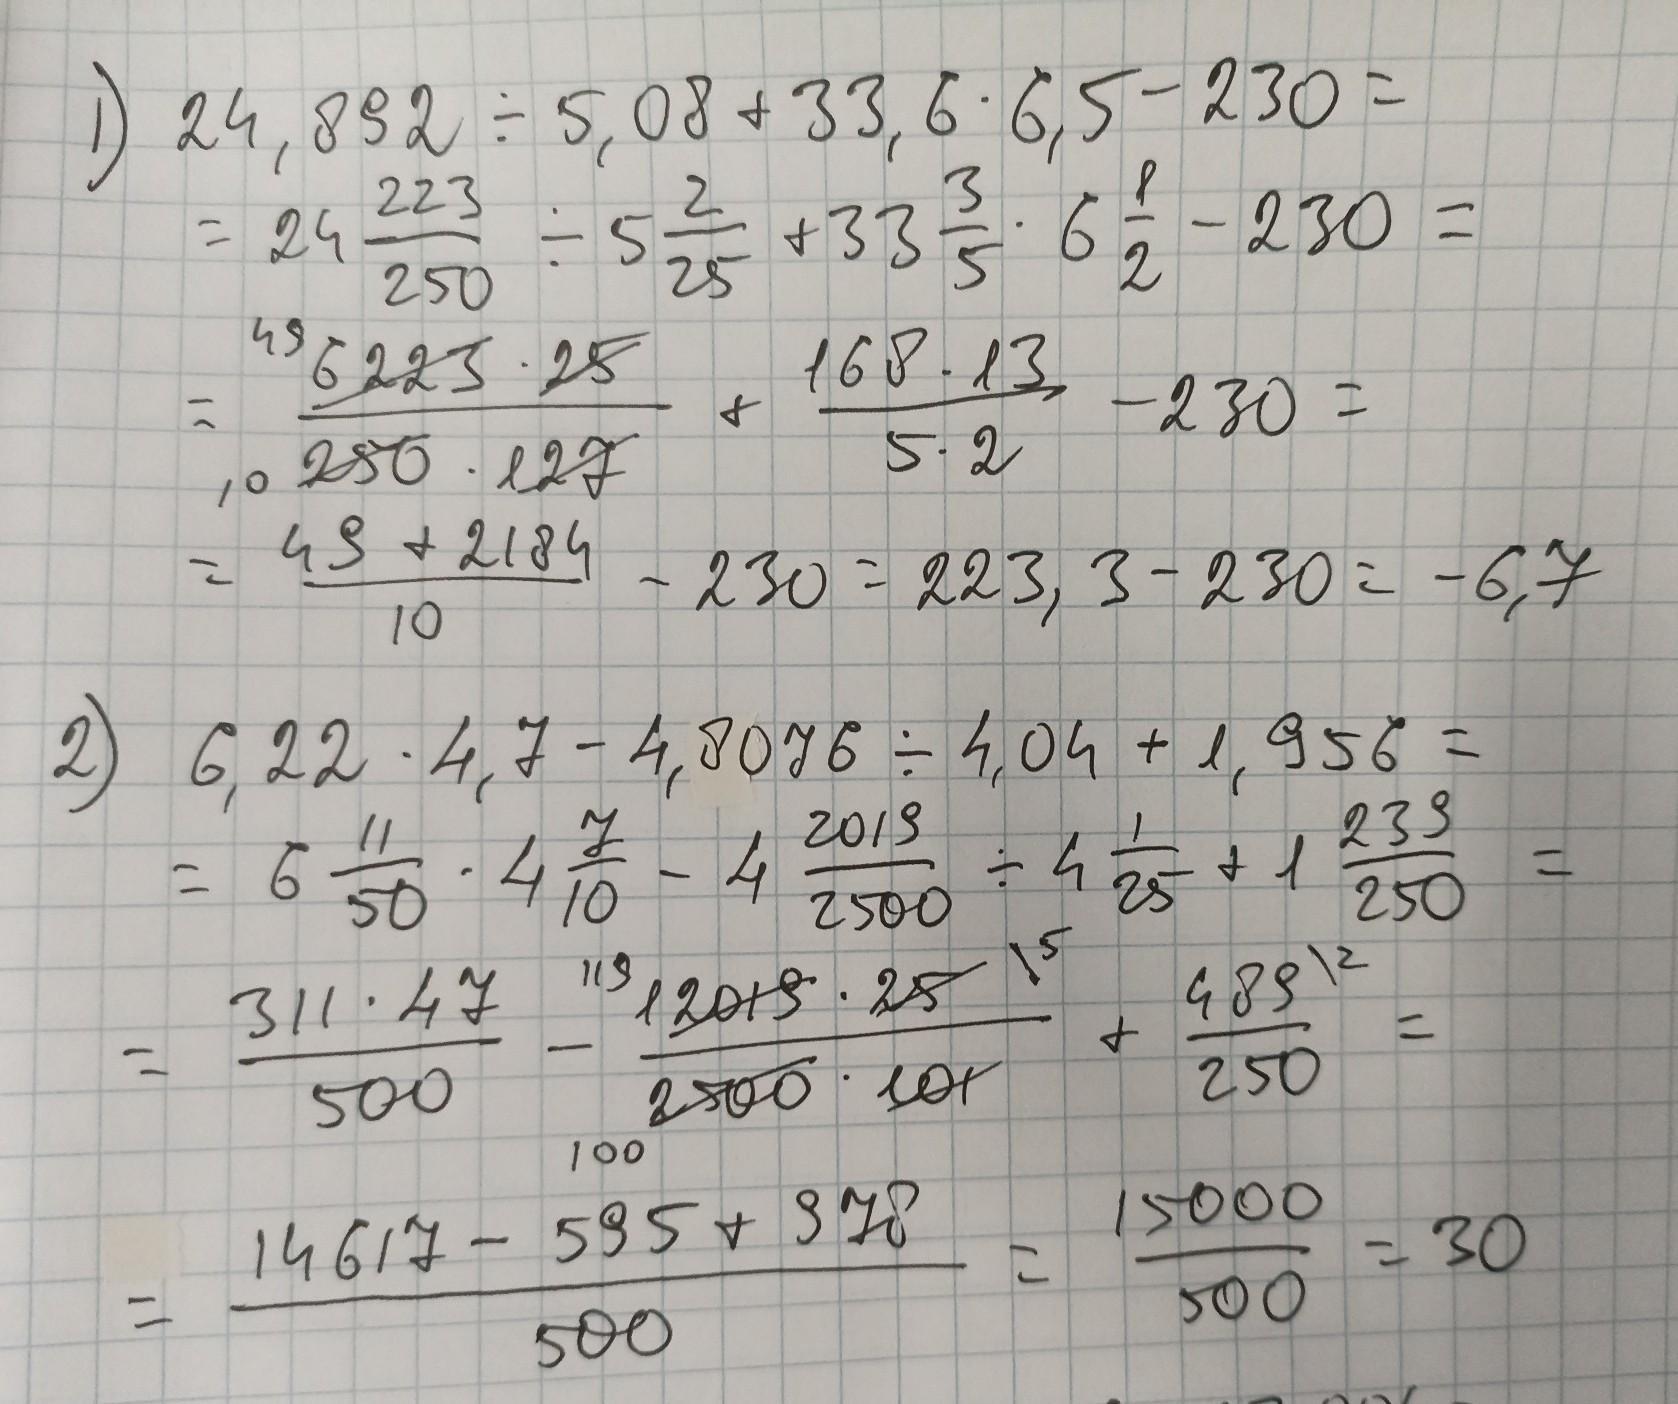 1) 24,892 ÷ 5,08 + 33,6 · 6,5 - 230 =
= 24 223/250 ÷ 5 2/25 + 33 3/5 · 6 1/2 - 230 =
= 49 6223 · 25 / 10 250 · 127 + 168 · 13 / 5 · 2 - 230 =
= 49 + 2184 / 10 - 230 = 223,3 - 230 = -6,7
2) 6,22 · 4,7 - 4,8076 ÷ 4,04 + 1,956 =
= 6 11/50 · 4 7/10 - 4 2019/2500 ÷ 4 1/25 + 1 239/250 =
= 311 · 47 / 500 - 119 12019 · 25 \5 / 2500 · 101 100 + 489 \2 / 250 =
= 14617 - 595 + 978 / 500 = 15000/500 = 30